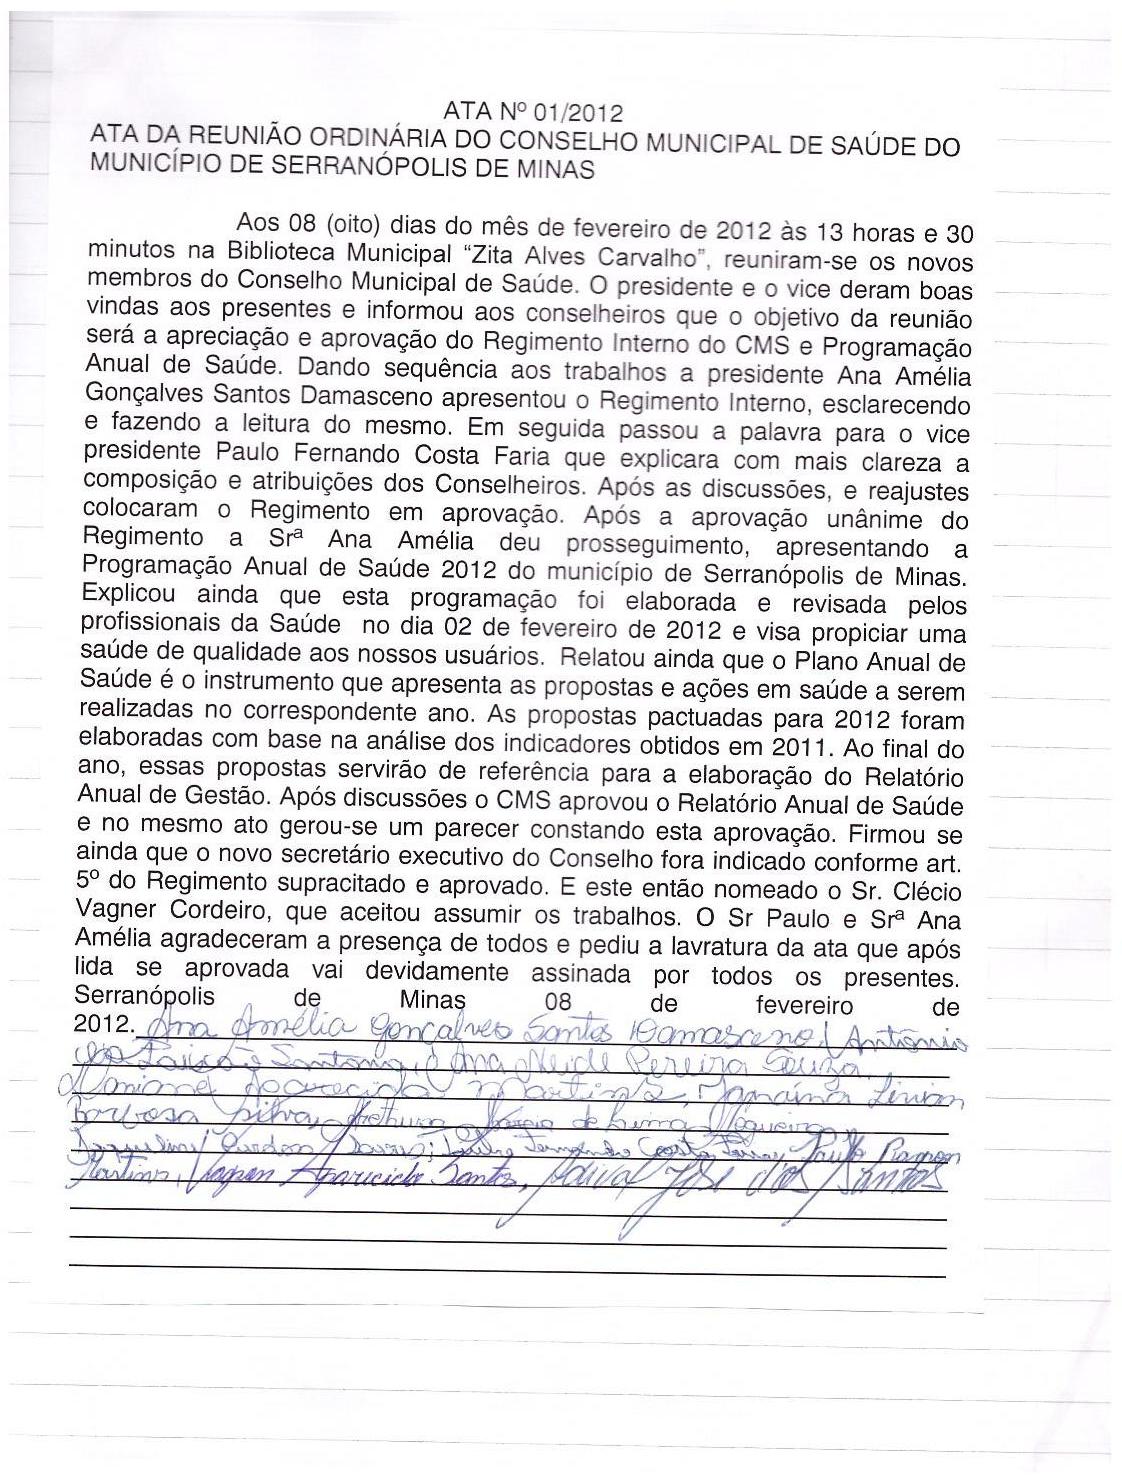 ATA Nº 01/2012
ATA DA REUNIÃO ORDINÁRIA DO CONSELHO MUNICIPAL DE SAÚDE DO
MUNICÍPIO DE SERRANÓPOLIS DE MINAS
Aos 08 (oito) dias do mês de fevereiro de 2012 às 13 horas e 30
minutos na Biblioteca Municipal “Zita Alves Carvalho”, reuniram-se os novos
membros do Conselho Municipal de Saúde. O presidente e o vice deram boas
vindas aos presentes e informou aos conselheiros que o objetivo da reunião
será a apreciação e aprovação do Regimento Interno do CMS e Programação
Anual de Saúde. Dando sequência aos trabalhos a presidente Ana Amélia
Gonçalves Santos Damasceno apresentou o Regimento Interno, esclarecendo
e fazendo a leitura do mesmo. Em seguida passou a palavra para o vice
presidente Paulo Fernando Costa Faria que explicara com mais clareza a
composição e atribuições dos Conselheiros. Após as discussões, e reajustes
colocaram o Regimento em aprovação. Após a aprovação unânime do
Regimento a Srª Ana Amélia deu prosseguimento, apresentando a
Programação Anual de Saúde 2012 do município de Serranópolis de Minas.
Explicou ainda que esta programação foi elaborada e revisada pelos
profissionais da Saúde no dia 02 de fevereiro de 2012 e visa propiciar uma
saúde de qualidade aos nossos usuários. Relatou ainda que o Plano Anual de
Saúde é o instrumento que apresenta as propostas e ações em saúde a serem
realizadas no correspondente ano. As propostas pactuadas para 2012 foram
elaboradas com base na análise dos indicadores obtidos em 2011. Ao final do
ano, essas propostas servirão de referência para a elaboração do Relatório
Anual de Gestão. Após discussões o CMS aprovou o Relatório Anual de Saúde
e no mesmo ato gerou-se um parecer constando esta aprovação. Firmou se
ainda que o novo secretário executivo do Conselho fora indicado conforme art.
5º do Regimento supracitado e aprovado. E este então nomeado o Sr. Clécio
Vagner Cordeiro, que aceitou assumir os trabalhos. O Sr Paulo e Srª Ana
Amélia agradeceram a presença de todos e pediu a lavratura da ata que após
lida se aprovada vai devidamente assinada por todos os presentes.
Serranópolis de Minas 08 de fevereiro de
2012. Ana Amélia Gonçalves Santos Damasceno, Antônio
Santana, Ana Neide Pereira Souza,
Aparecida Martins, Janaína Lívian
Barbosa Silva, de Lima Nogueira,
Fernando Costa Faria, Paulo Ramon
Martins, Vagner Aparecido Santos, José dos Santos